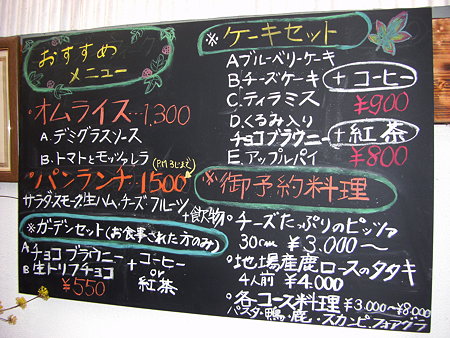 おすすめ
メニュー
°オムライス・・1,300
A.デミグラスソース
B.トマトとモッツァレラ
(P.M 3じまで)
°パンランチ・・1500
サラダ・スモーク・生ハム、チーズ・フルーツ
+飲物
※ガーデンセット(お食事された方のみ)
A チョコブラウニー
B 生トリフチョコ
+ コーヒー
or
紅茶
¥550
※ケーキセット
A ブルーベリーケーキ
B チーズケーキ
C.ティラミス
D.くるみ入り
チョコブラウニー
E.アップルパイ
+コーヒー
¥900
+紅茶
¥800
※御予約料理
°チーズたっぷりのピッツァ
30cm ¥3.000〜
°地場産鹿ロースのタタキ
4人前 ¥4.000
°各コース料理 ¥3.000〜¥8.000
パスタ・鴨・鹿・スカンピ・フォアグラ